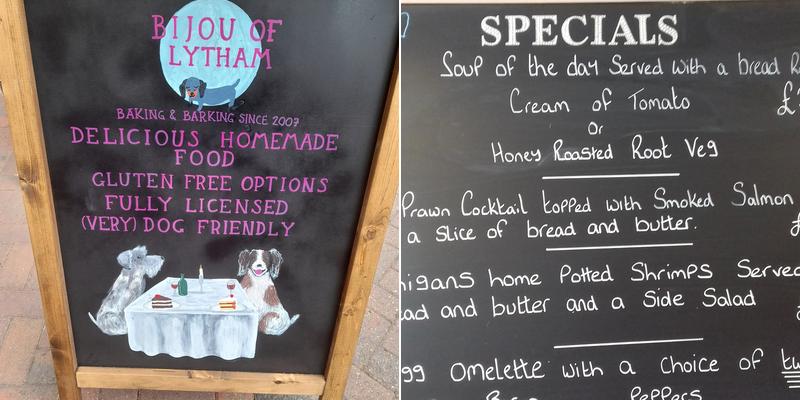 BIJOU OF
LYTHAM
BAKING & BARKING SINCE 2007
DELICIOUS HOMEMADE
FOOD
GLUTEN FREE OPTIONS
FULLY LICENSED
(VERY) DOG FRIENDLY
SPECIALS
Soup of the day Served with a bread
Cream of Tomato £
Or
Honey Roasted Root Veg
Prawn Cocktail topped with Smoked Salmon
a slice of bread and butter.
home Potted Shrimps Served
and butter and a Side Salad
Omelette with a Choice of
Peppers